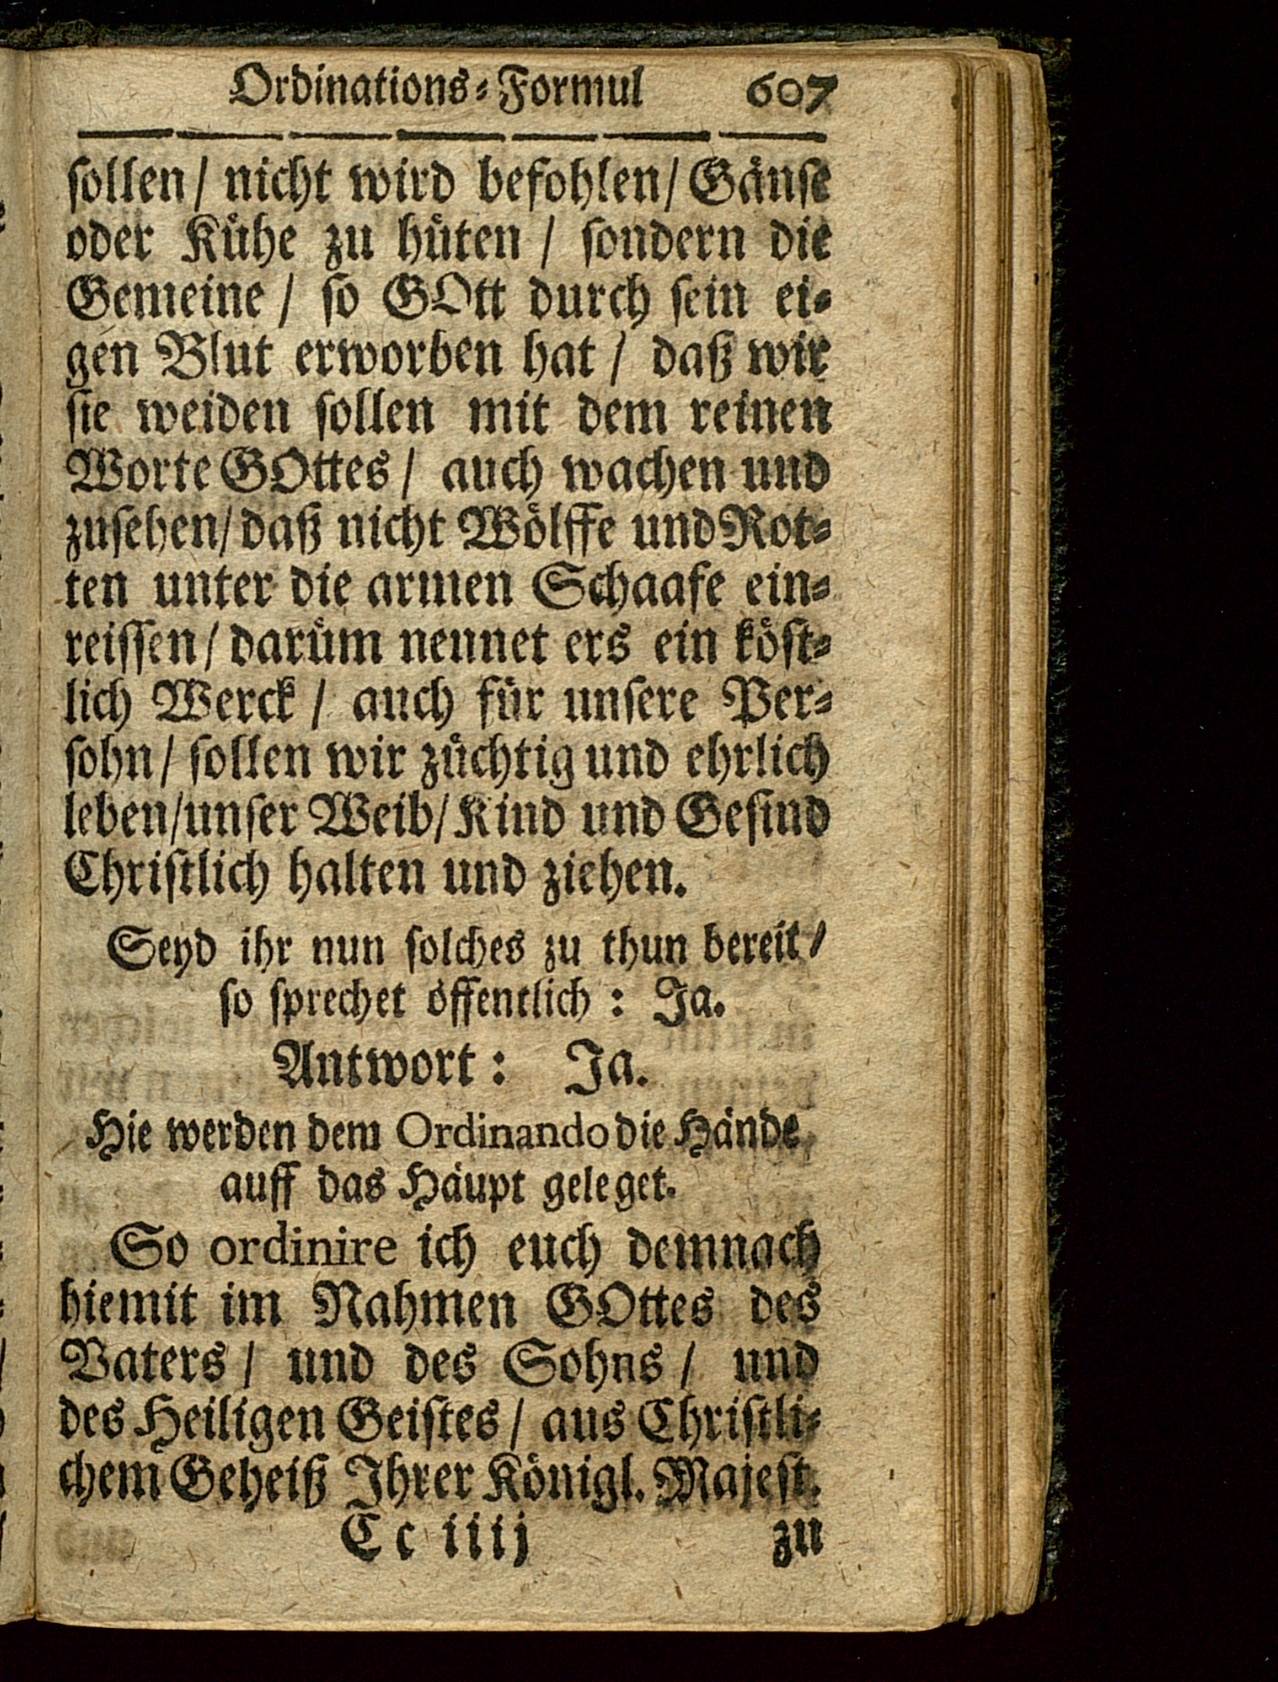 Ordinations-Formul 607
sollen/ nicht wird befohlen/ Gänse
oder Kühe zu hüten / sondern die
Gemeine / so GOtt durch sein ei-
gen Blut erworben hat / daß wir
sie weiden sollen mit dem reinen
Worte GOttes / auch wachen und
zusehen/ daß nicht Wölffe und Rot-
ten unter die armen Schaafe ein-
reissen/ darüm nennet ers ein köst-
lich Werck / auch für unsere Per-
sohn/ sollen wir züchtig und ehrlich
leben/unser Weib/ Kind und Gesind
Christlich halten und ziehen.
Seyd ihr nun solches zu thun bereit/
so sprechet öffentlich : Ja.
Antwort : Ja.
Hie werden dem Ordinando die Hände
auff das Häupt geleget.
So ordinire ich euch demnach
hiemit im Nahmen GOttes des
Vaters / und des Sohns / und
des Heiligen Geistes / aus Christli-
chem Geheiß Ihrer Königl. Majest.
Cc iiij zu